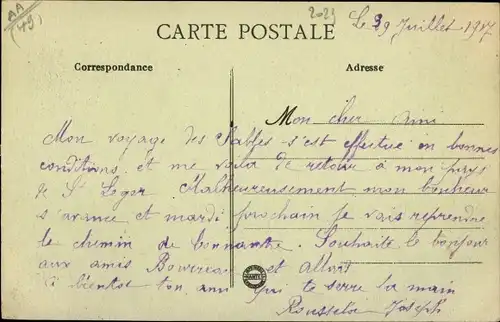 AA
(49)
2029
Le 29 Juillet 1917
CARTE POSTALE
Correspondance
Adresse
Mon cher Ami
Mon voyage des Sables s'est effectué en bonnes
conditions et me voila de retour à mon pays
de St Leger Malheureusement mon bonheur
s'avance et mardi prochain je vais reprendre
le chemin de Souhaite le bonjour
aux amis et
à bientot ton ami qui te serre la main
Rousselot Joseph